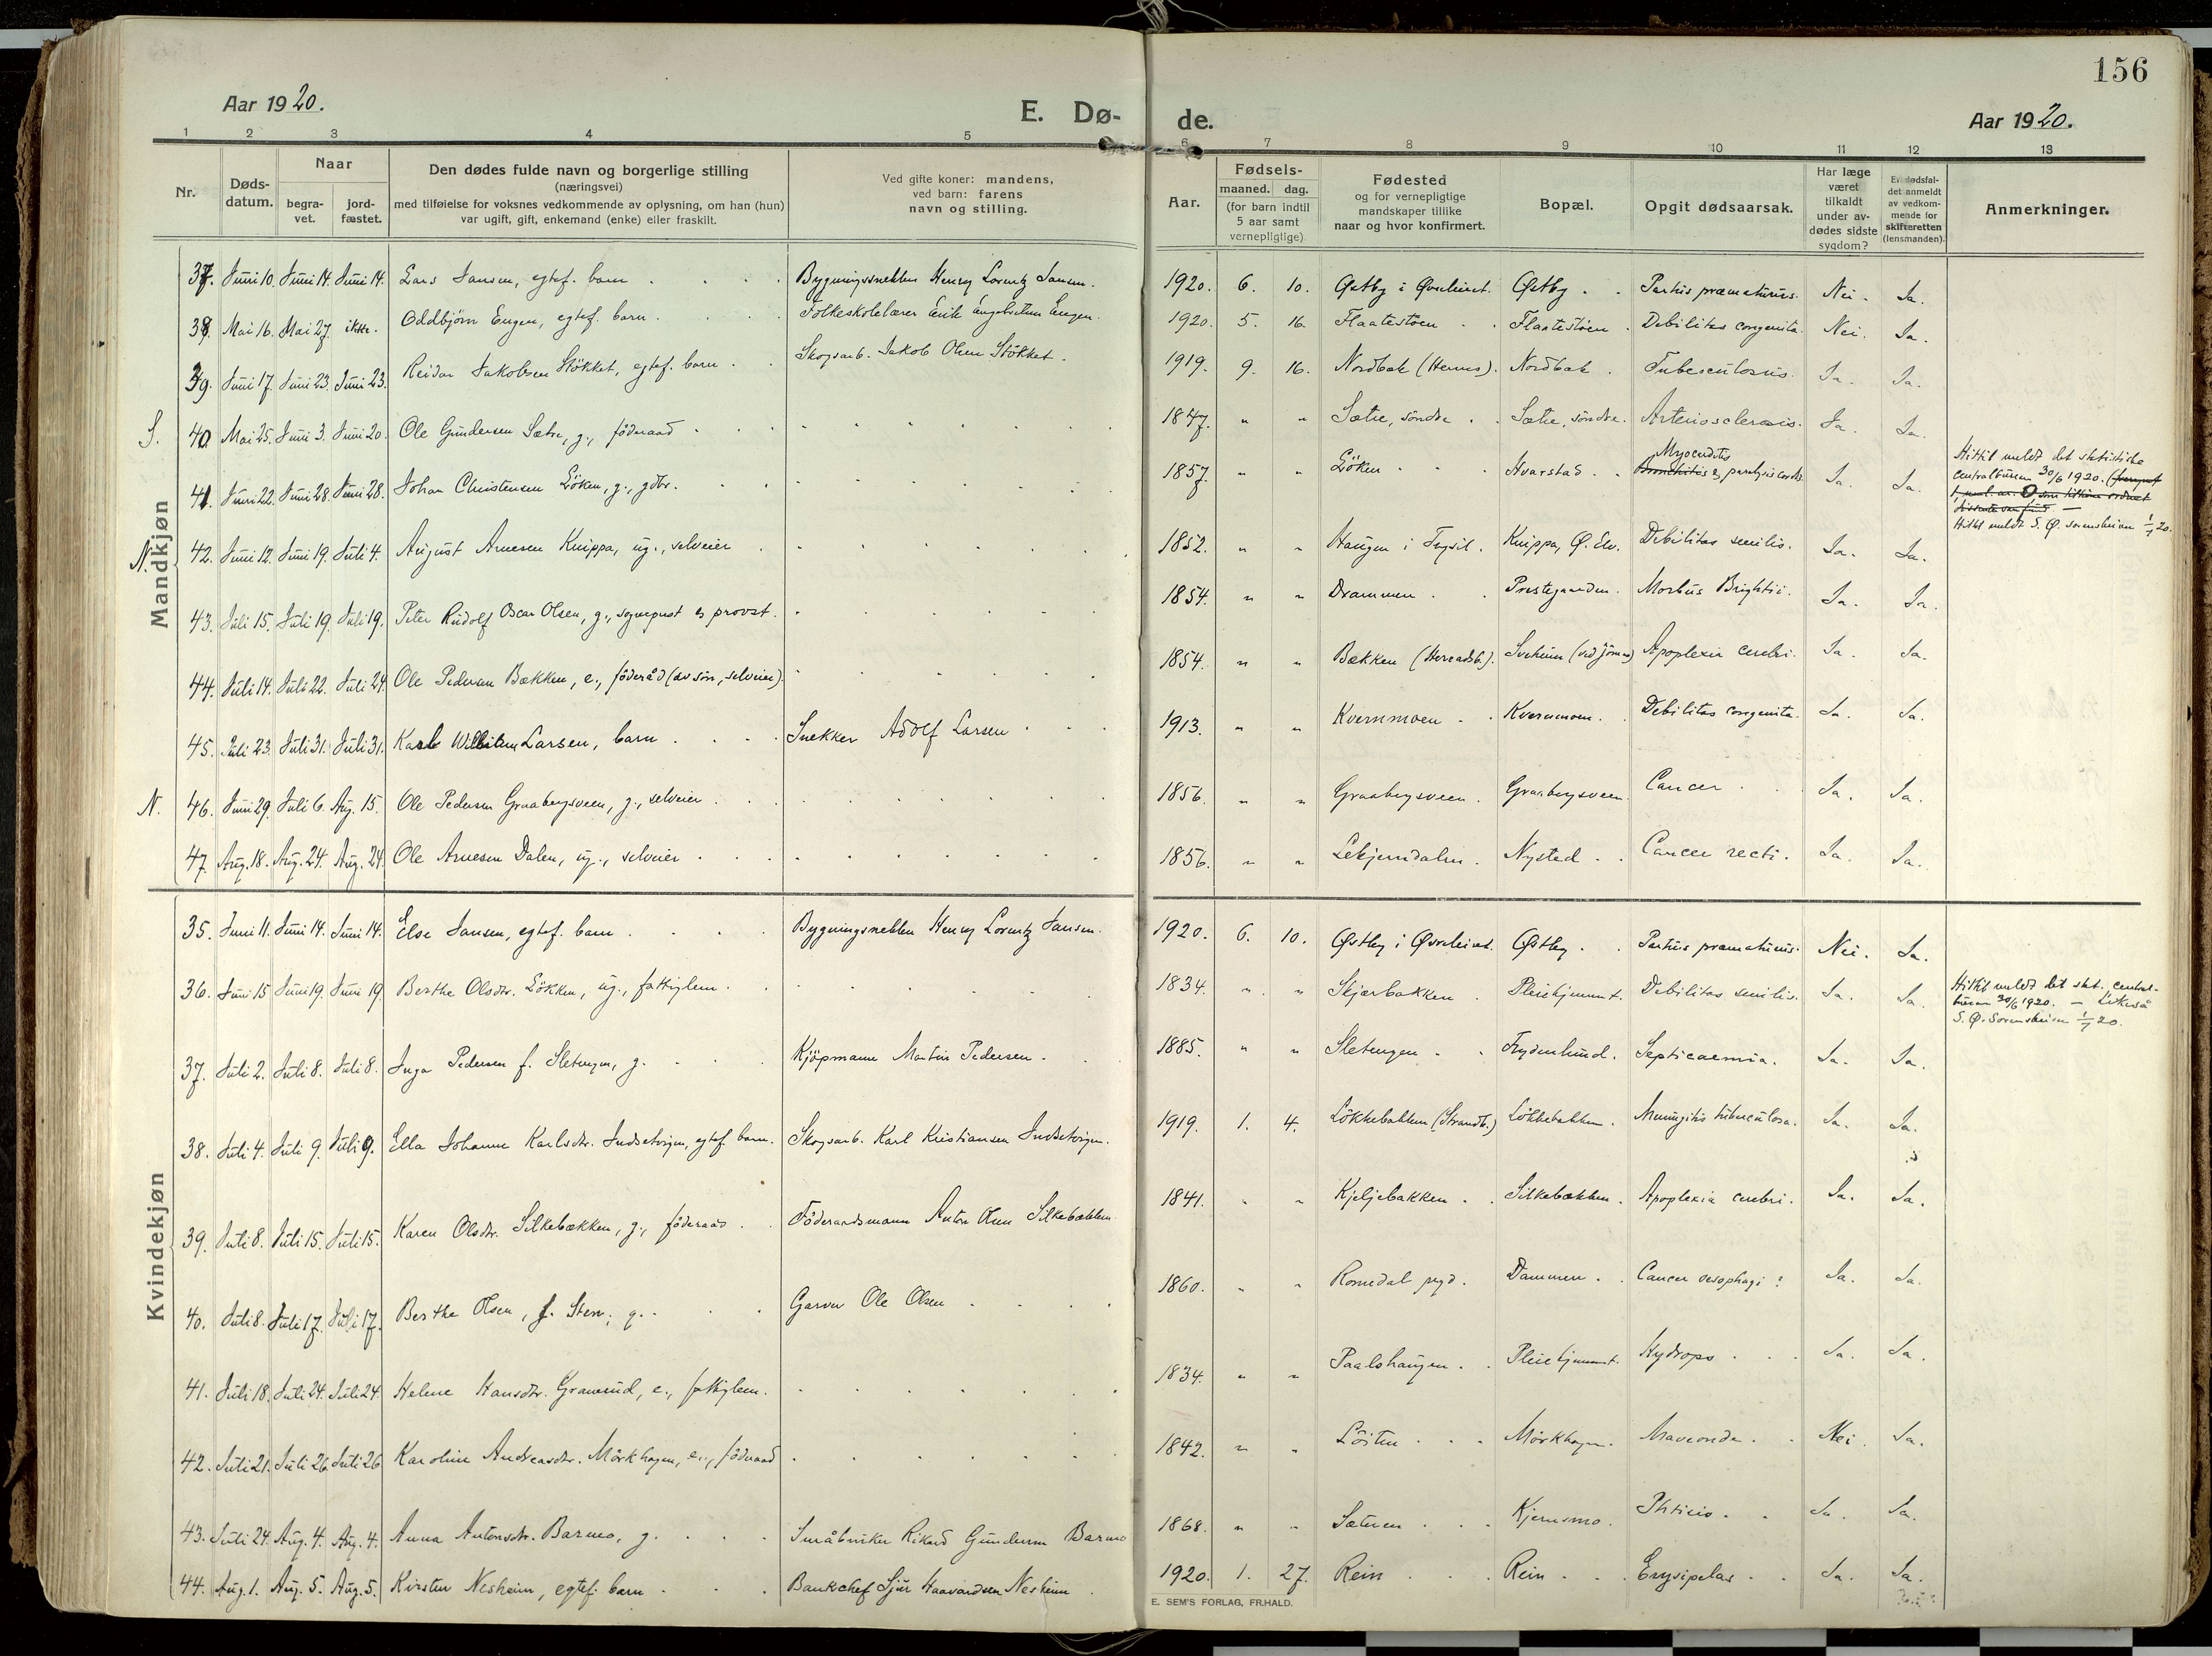 156
Aar 1920.
E. Dø-
de.
Aar 1920.
1 2 3 4 5 6 7 8 9 10 11 12 13
Nr.
Døds-
datum.
Naar
begra-
vet.
jord-
fæstet.
Den dødes fulde navn og borgerlige stilling
(næringsvei)
med tilføielse for voksnes vedkommende av oplysning, om han (hun)
var ugift, gift, enkemand (enke) eller fraskilt.
Ved gifte koner: mandens,
ved barn: farens
navn og stilling.
Aar.
Fødsels-
maaned. dag.
(for barn indtil
5 aar samt
vernepligtige)
Fødested
og for vernepligtige
mandskaper tillike
naar og hvor konfirmert.
Bopæl.
Opgit dødsaarsak.
Har læge
været
tilkaldt
under av-
dødes sidste
sygdom?
Er dødsfal-
det anmeldt
av vedkom-
mende for
skifteretten
(lensmanden).
Anmerkninger.
Mandkjøn
37. Juni 10. Juni 14. Juni 14. Lars Jansen, egtef. barn Bygningssnekker Henry Lorentz Jansen. 1920. 6. 10. Østby Partus præmaturus. Nei. Ja.
38. Mai 16. Mai 27. ikke. Oddbjörn Engen, egtef. barn. Folkeskolelærer Erik Engebretsen Engen. 1920. 5. 16. Flaatestöen Flaatestöen Debilitas congenita. Nei. Ja.
39. Juni 17. Juni 23. Juni 23. Reidar Jakobsen Stökket, egtef. barn Skogsarb. Jakob Olsen Stökket. 1919. 9. 16. Nordbak (Hernes). Nordbak. Tuberculosis. Ja. Ja.
S. 40. Mai 25. Juni 3. Juni 20. Ole Gundersen Sætre, g., föderaad 1847. " " Sætre, söndre. Sætre, söndre. Arteriosclerosis. Ja. Ja.
41. Juni 22. Juni 28. Juni 28. Johan Christensen Löken, g., gdbr. 1857. " " Löken Hvarstad Myocarditis Bronchitis & paralysis cordis Ja. Ja.
Hittil meldt det statistiske
centralbureau 30/6 1920.
Hittil meldt S. Ø. sorenskriveri 1/7 20.
N. 42. Juni 12. Juni 19. Juli 4. August Arnesen Knippa, ug., selveier 1852. " " Haugen i Trysil. Knippa, Ø. Elv. Debilitas senilis. Ja. Ja.
43. Juli 15. Juli 19. Juli 19. Peter Rudolf Oscar Olsen, g., sogneprest & provst. 1854. " " Drammen Prestegaarden. Morbus Brightii. Ja. Ja.
44. Juli 14. Juli 22. Juli 24. Ole Pedersen Bækken, e., föderåd (av söm, selveier) 1854. " " Bækken Apoplexia cerebri. Ja. Ja.
45. Juli 23. Juli 31. Juli 31. Karl Wilhelm Larsen, barn Snekker Adolf Larsen 1913. " " Kvernmoen Kvernmoen. Debilitas congenita. Ja. Ja.
N. 46. Juni 29. Juli 6. Aug. 15. Ole Pedersen Graabergsveen, g., selveier 1856. " " Graabergsveen. Graabergsveen Cancer Ja. Ja.
47. Aug. 18. Aug. 24. Aug. 24. Ole Arnesen Dalen, ug., selveier 1856. " " Nysted Cancer recti. Ja. Ja.
Kvindekjøn
35. Juni 11. Juni 14. Juni 14. Else Jansen, egtef. barn Bygningssnekker Henry Lorentz Jansen. 1920. 6. 10. Østby Partus præmaturus. Nei. Ja.
36. Juni 15 Juni 19. Juni 19 Berthe Olsdtr. Lökken, ug., fattiglem. 1834. " " Skjærbakken Pleiehjemmet. Debilitas senilis. Ja. Ja.
Hittil meldt det stat. central-
bureau 30/6 1920. – Likeså
S. Ø. Sorenskriveri 1/7 20.
37. Juli 2. Juli 8. Juli 8. Inga Pedersen f. Sletengen, g. Kjöpmann Martin Pedersen. 1885. " " Sletengen Frydenlund. Septicaemia. Ja. Ja.
38. Juli 4. Juli 9. Juli 9. Ella Johanne Karlsdtr. Indsetvigen, egtef. barn. Skogsarb. Karl Kristiansen Indsetvigen. 1919. 1. 4. Lökkebakken (Strandb.) Lökkebakken. Meningitis tuberculosa. Ja. Ja.
39. Juli 8. Juli 15. Juli 15. Karen Olsdtr. Silkebækken, g., föderaad Föderaadsmann Anton Olsen Silkebækken 1841. " " Kjeljebakken Silkebækken Apoplexia cerebri. Ja. Ja.
40. Juli 8. Juli 17. Juli 17. Berthe Olsen, f. Sten; g. Garver Ole Olsen 1860. " " Romedal Dammen Cancer oesophagi? Ja. Ja.
41. Juli 18. Juli 24. Juli 24. Helene Hansdtr. Granerud, e., fattiglem. 1834. " " Paalshaugen Pleiehjemmet. Hydrops Ja. Ja.
42. Juli 21. Juli 26. Juli 26 Karoline Andreasdtr. Mörkhagen, e., föderaad 1842. " " Löiten Mörkhagen. Maveonde Nei. Ja.
43. Juli 24. Aug. 4. Aug. 4. Anna Antonsdtr. Barmo, g. Småbruker Rikard Gundersen Barmo 1868. " " Sætren Kjernsmo. Phtisis Ja. Ja.
44. Aug. 1. Aug. 5. Aug. 5. Kirsten Nesheim, egtef. barn Bankchef Sjur Haavardsen Nesheim 1920. 1. 27. Rein Rein Erysipelas Ja. Ja.
E. SEM'S FORLAG, FR.HALD.